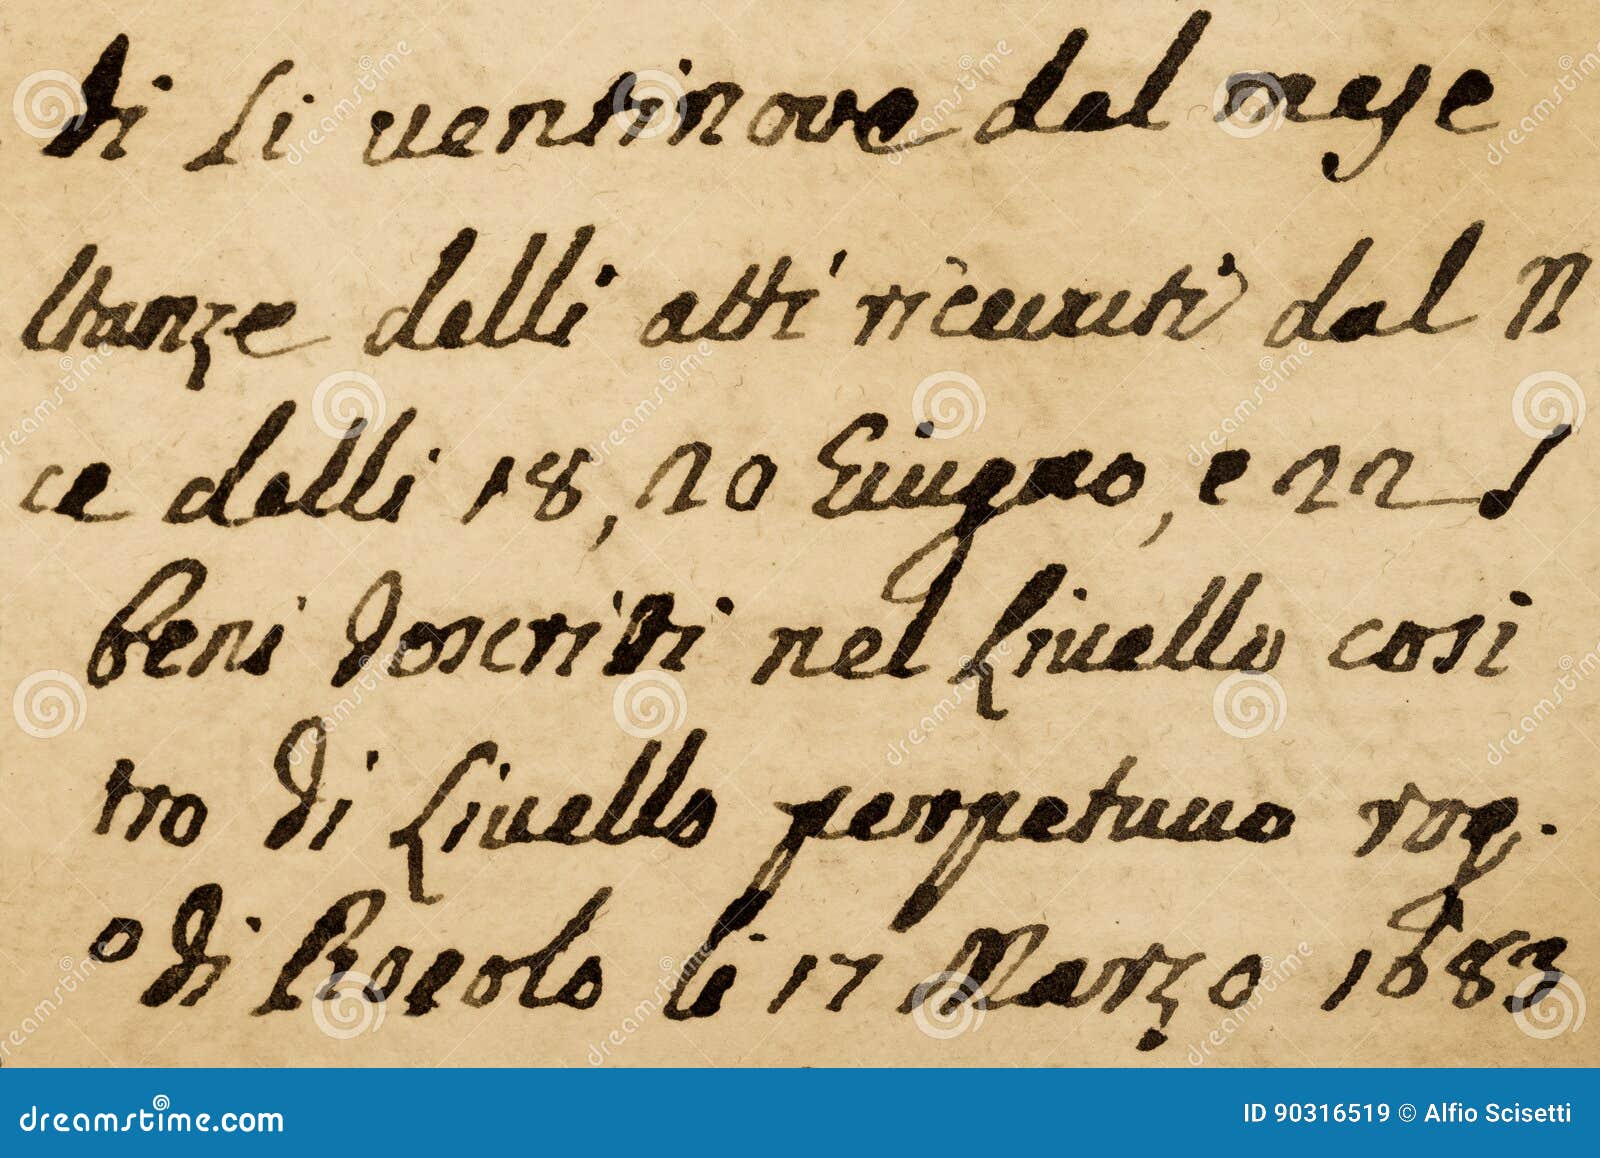 di li ventinove dal mese
ltanze delli atti riceuuti dal N
ce delli 18, 20 Giugno, e 22
beni descritti nel Liuello cosi
tro di Liuello perpetuuo rog.
o di li 17 Marzo 1683
dreamstime.com
ID 90316519 © Alfio Scisetti